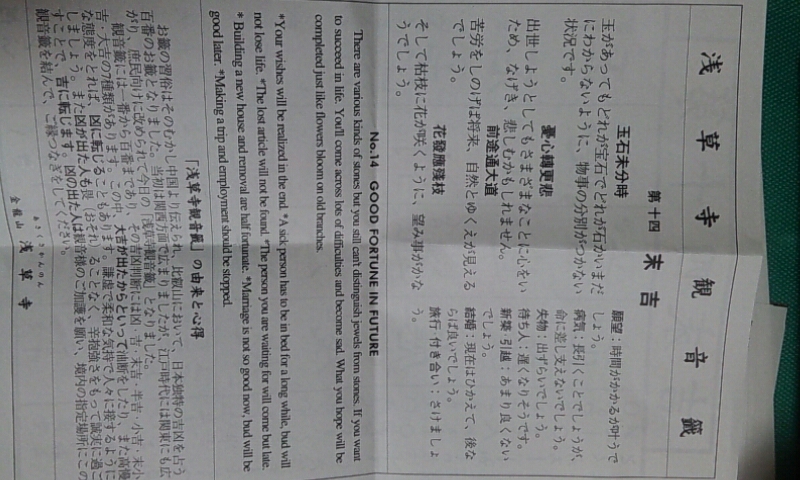 浅草寺観音籤
第十四 末吉
玉石未分時
玉があってもどれが宝石でどれが石かいまだ
にわからないように、物事の分別がつかない
状況です。
憂心轉更悲
出世しようとしてもさまざまなことに心をい
ため、なげき、悲しむかもしれません。
前途通大道
苦労をしのげば将来、自然とゆくえが見える
でしょう。
花發應殘枝
そして枯枝に花が咲くように、望み事がかな
うでしょう。
願望:時間がかかるが叶うで
しょう。
病気:長引くことでしょうが、
命に差し支えないでしょう。
失物:出ずらいでしょう。
待ち人:遅くなりそうです。
新築 引越:あまり良くない
でしょう。
結婚:現在はひかえて、後な
らば良いでしょう。
旅行 付き合い:さけましょ
う。
No.14 GOOD FORTUNE IN FUTURE
There are various kinds of stones but you still can't distinguish jewels from stones. If you want
to succeed in life. You'll come across lots of difficulties and become sad. What you hope will be
completed just like flowers bloom on old branches.
*Your wishes will be realized in the end. *A sick person has to be in bed for a long while, bud will
not lose life. *The lost article will not be found. *The person you are waiting for will come but late.
* Building a new house and removal are half fortunate. *Marriage is not so good now, bud will be
good later. *Making a trip and employment should be stopped.
「浅草寺観音籤」の由来と心得
お籤の習俗はそのむかし中国より伝えられ、比叡山において、日本独特の吉凶を占う
百番のお籤となりました。当初は関西方面で広まりましたが、江戸時代には関東にも広
がり、庶民向けに改められて今日の「浅草寺観音籤」となりました。
観音籤には一番から百番まであり、その吉凶判断には凶・吉・末吉・半吉・小吉・末小
吉・大吉の7種類があります。この中、大吉が出たからといって油断をしたり、また高慢
な態度をとれば、凶に転じることもあります。謙虚で柔和な気持で人々に接するように
しましょう。また凶が出た人も畏(おそ)れることなく、辛抱強さをもって誠実に過ご
すことで、吉に転じます。凶の出た人は観音様のご加護を願い、境内の指定場所にこの
観音籤を結んで、ご縁つなぎをしてください。
あさくさかんのん
金龍山 浅草寺